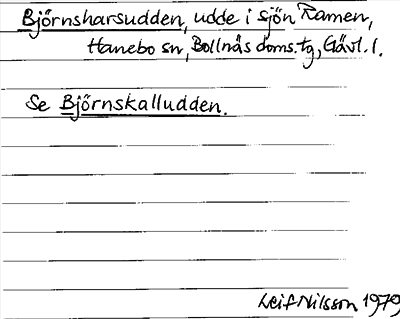 Björnsharsudden, udde i sjön Ramen,
Hanebo sn, Bollnäs doms.tg, Gävl. l.
Se Björnskalludden.
Leif Nilsson 1979